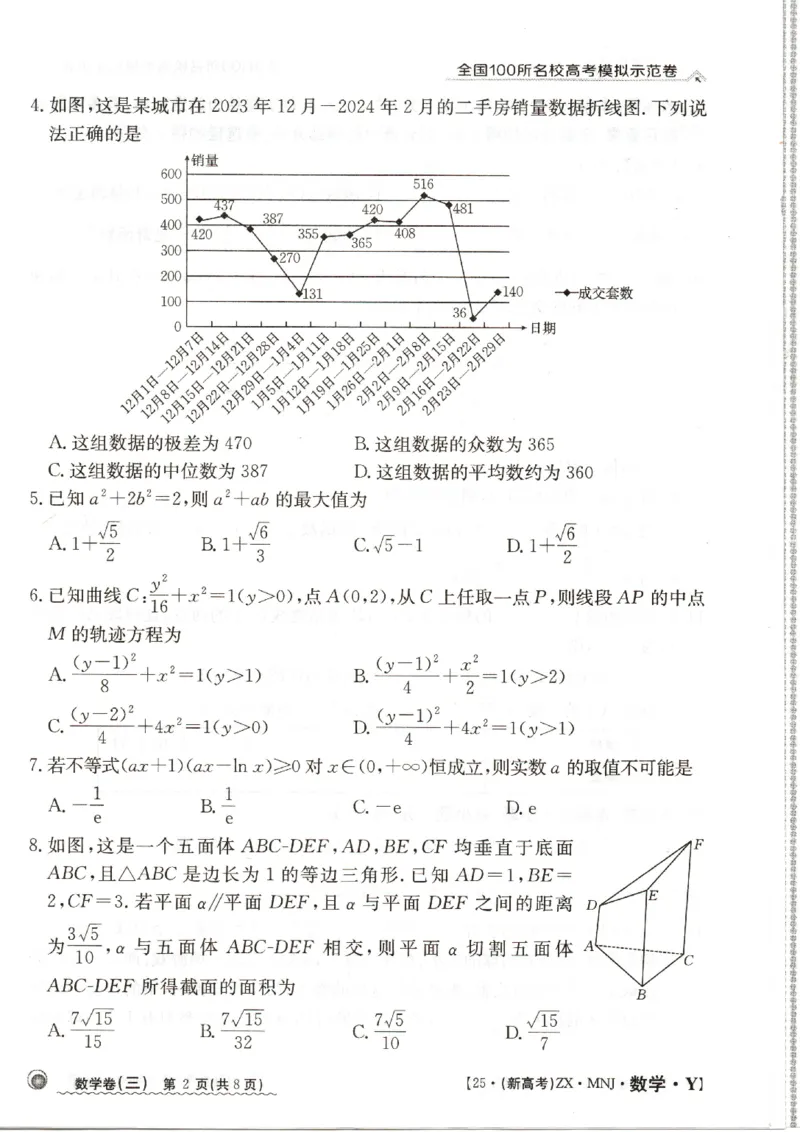 全国100所名校高考模拟示范卷
4.如图,这是某城市在2023年12月—2024年2月的二手房销量数据折线图.下列说
法正确的是
销量
600
516
500
437
420
481
387
400
420
355
408
365
300
270
200
131
140
成交套数
100
36
0
日期
12月1日—12月7日
12月8日—12月14日
12月15日—12月21日
12月22日—12月28日
12月29日—1月4日
1月5日—1月11日
1月12日—1月18日
1月19日—1月25日
1月26日—2月1日
2月2日—2月8日
2月9日—2月15日
2月16日—2月22日
2月23日—2月29日
A.这组数据的极差为470 B.这组数据的众数为365
C.这组数据的中位数为387 D.这组数据的平均数约为360
5.已知a²+2b²=2,则a²+ab的最大值为
A.1+√5/2 B.1+√6/3 C.√5-1 D.1+√6/2
6.已知曲线C:y²/16+x²=1(y>0),点A(0,2),从C上任取一点P,则线段AP的中点
M的轨迹方程为
A.(y-1)²/8+x²=1(y>1) B.(y-1)²/4+x²/2=1(y>2)
C.(y-2)²/4+4x²=1(y>0) D.(y-1)²/4+4x²=1(y>1)
7.若不等式(ax+1)(ax-ln x)≥0对x∈(0,+∞)恒成立,则实数a的取值不可能是
A.-1/e B.1/e C.-e D.e
8.如图,这是一个五面体ABC-DEF,AD,BE,CF均垂直于底面
ABC,且△ABC是边长为1的等边三角形.已知AD=1,BE=
2,CF=3.若平面α∥平面DEF,且α与平面DEF之间的距离
为3√5/10,α与五面体ABC-DEF相交,则平面α切割五面体
ABC-DEF所得截面的面积为
F
E
D
A
C
B
A.7√15/15 B.7√15/32 C.7√5/10 D.√15/7
数学卷(三) 第2页(共8页)
【25·(新高考)ZX·MNJ·数学·Y】